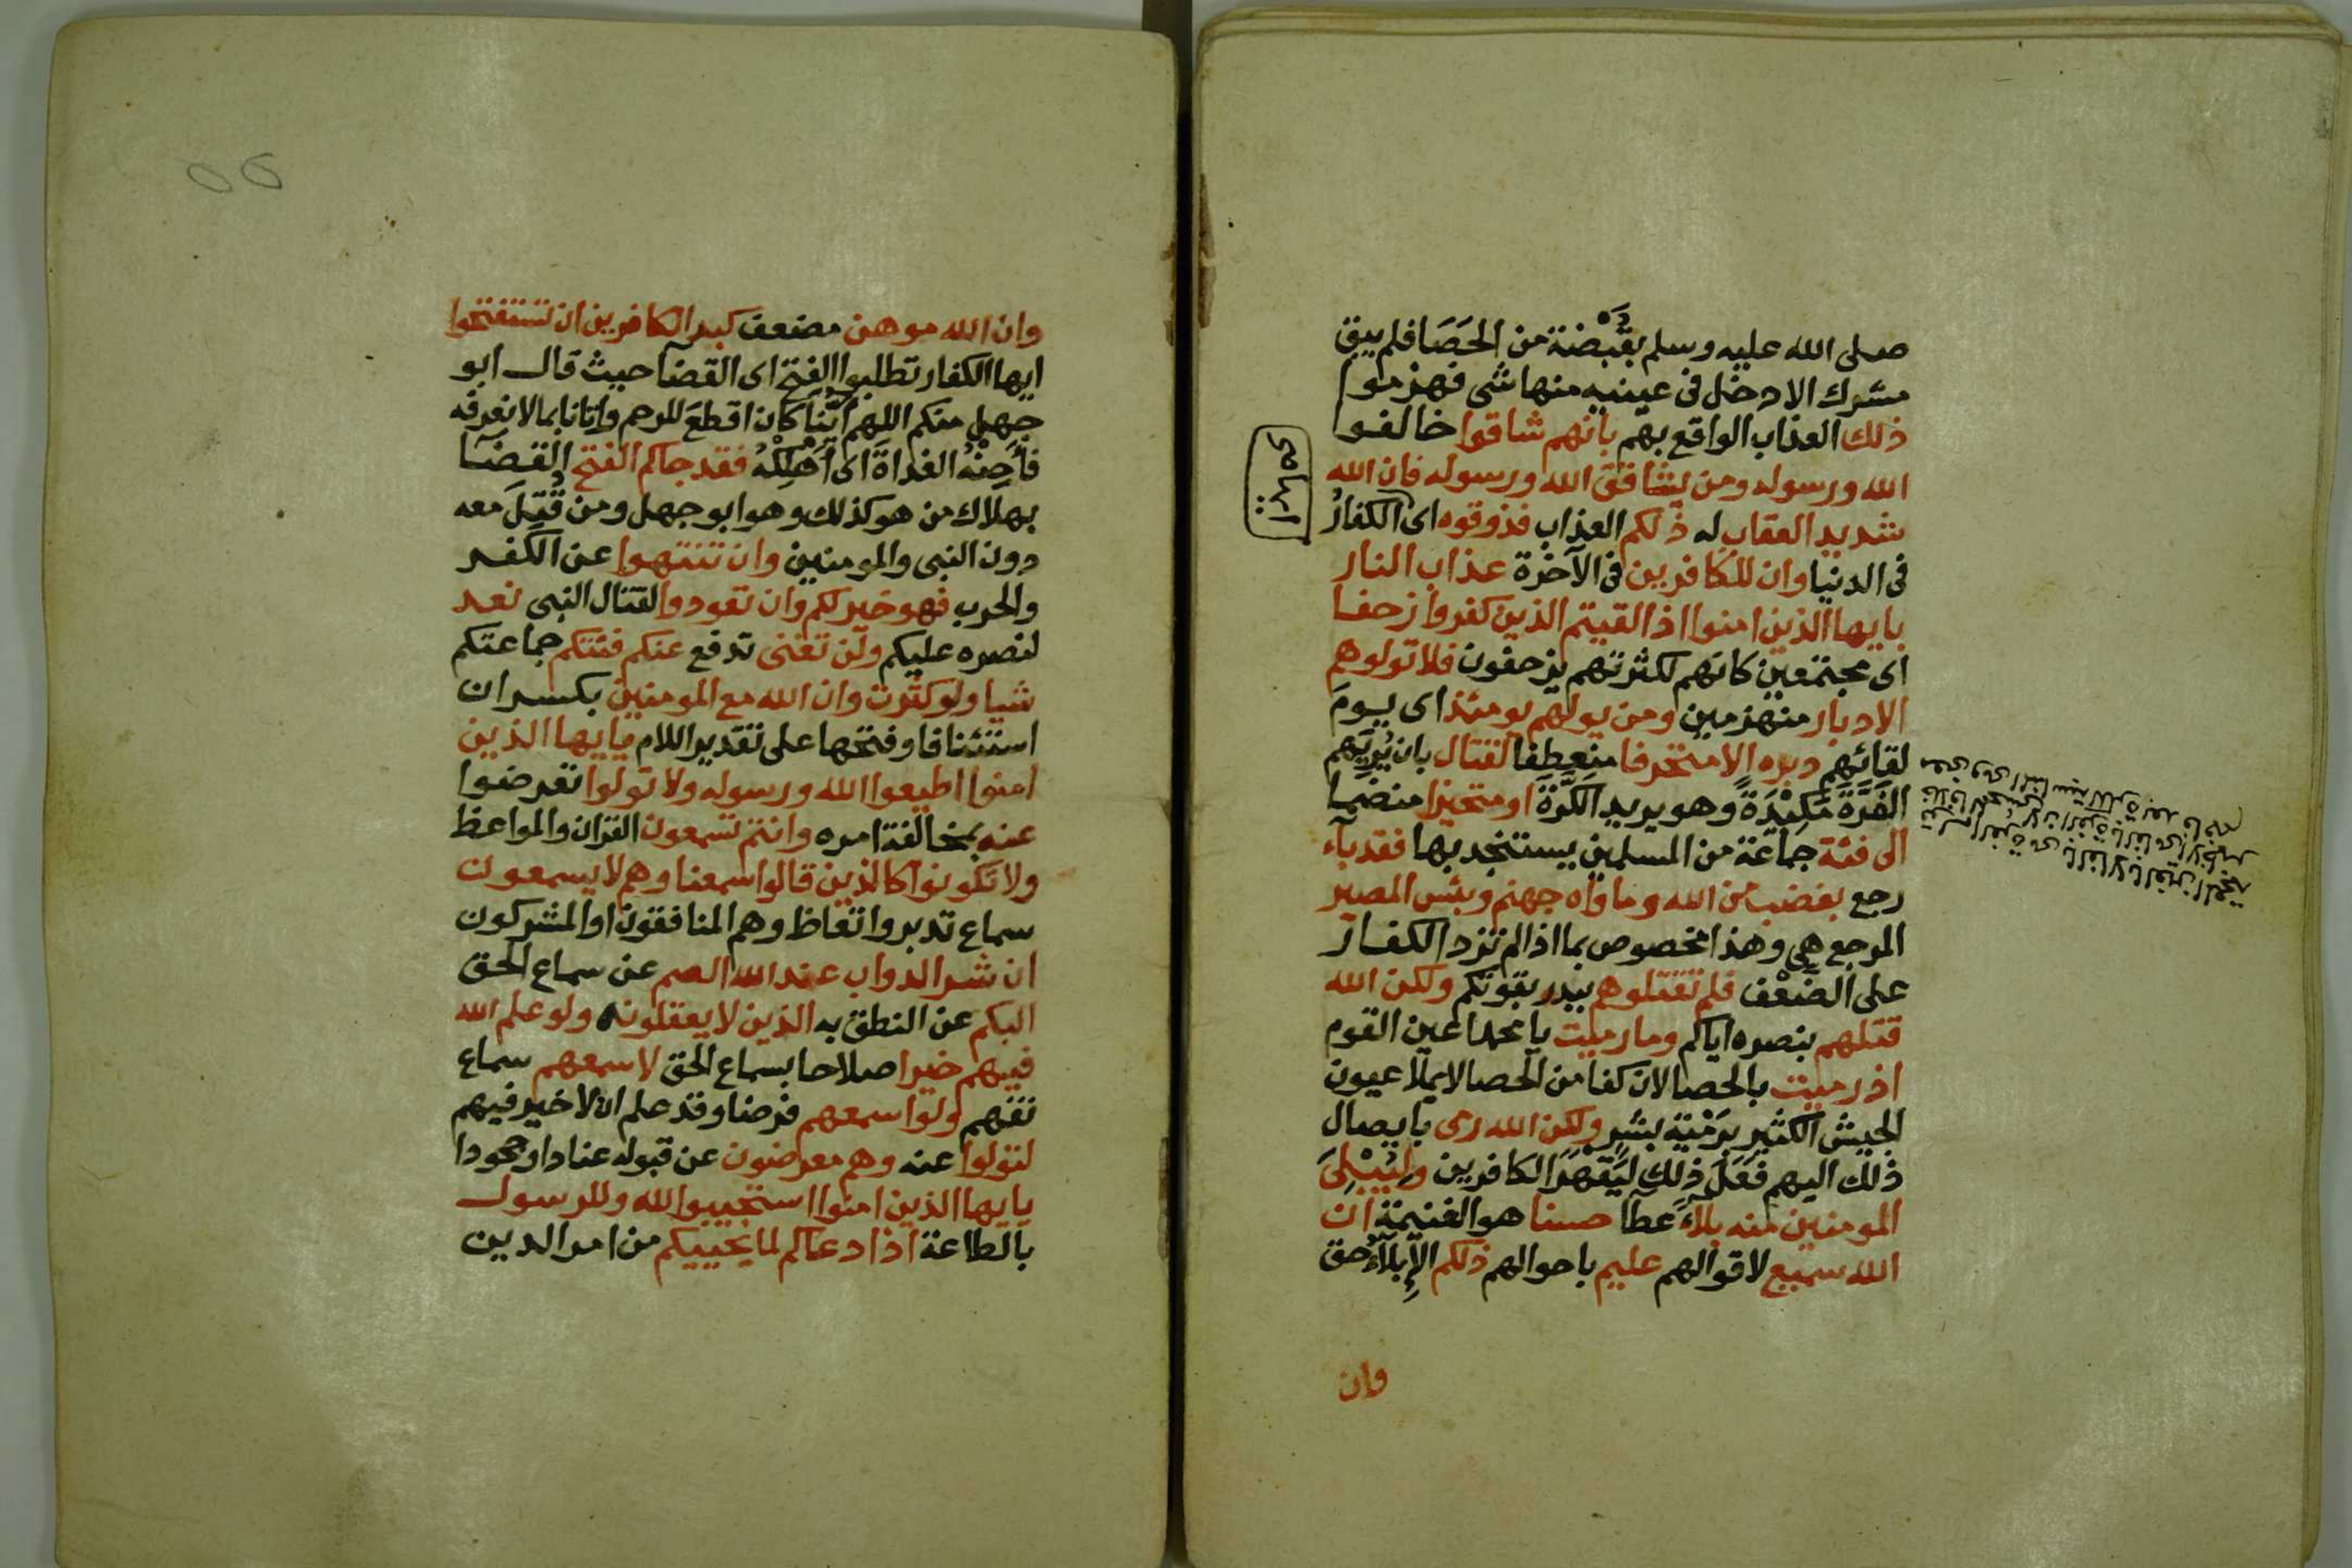 صلى الله عليه وسلم بقَبْضة من الحَصَا فلم يبق
مشرك الا دخل فى عينيه منها شى فهزموا
ذلك العذاب الواقع بهم بانهم شاقوا خالفوا
الله ورسوله ومن يشاقق الله ورسوله فان الله
شديد العقاب له ذلكم العذاب فذوقوه اى الكفار
فى الدنيا وان للكافرين فى الآخرة عذاب النار
يايها الذين امنوا اذا لقيتم الذين كفروا زحفا
اى مجتمعين كانهم لكثرتهم يزحفون فلا تولوهم
الادبار منهزمين ومن يولهم يومئذ اى يوم
لقائهم دبره الا متحرفا منعطفا لقتال بان يُرِيَهم
الفَرَّةَ مَكِيْدَةً وهو يريد الكَرَّةَ او متحيزا منضما
الى فئة جماعة من المسلمين يستنجد بها فقد بآء
رجع بغضب من الله وماواه جهنم وبئس المصير
المرجع هى وهذا مخصوص بما اذا لم تزد الكفار
على الضَعْف فلم تقتلوهم ببدر بقوتكم ولكن الله
قتلهم بنصره اياكم وما رميت يا محمد اعين القوم
اذ رميت بالحصا لان كفا من الحصا لا يملا عيون
الجيش الكثير بَرمْيَة بشر ولكن الله رمى بايصال
ذلك اليهم فَعَلَ ذلك ليَقْهَرَ الكافرين وليُبْلِىَ
المومنين منه بلآءً عطآ حسنا هو الغنيمة ان
الله سميع لاقوالهم عليم باحوالهم ذلكم الإبلآءُ حق
وان
وان الله موهن مضعف كيد الكافرين ان تستفتحوا
ايها الكفار تطلبوا الفتح اى القضآ حيث قال ابو
جهل منكم اللهم اَيُّنَا كان اقطعَ للرحم واتانا بما لا نعرفه
فأَحِنْهُ الغداةَ اى اَهْلِكْهُ فقد جاكم الفتح القضآ
بهلاك من هو كذلك وهو ابو جهل ومن قُتِلَ معه
دون النبى والمومنين وان تنتهوا عن الكفر
والحرب فهو خير لكم وان تعودوا لقتال النبى نعد
لنصره عليكم ولن تغنى تدفع عنكم فئتكم جماعتكم
شيا ولو كثرت وان الله مع المومنين بكسر ان
استئنافا وفتحها على تقدير اللام يايها الذين
امنوا اطيعوا الله ورسوله ولا تولوا تعرضوا
عنه بمخالفة امره وانتم تسمعون القران والمواعظ
ولا تكونوا كالذين قالوا سمعنا وهم لا يسمعون
سماع تدبر واتعاظ وهم المنافقون او المشركون
ان شر الدواب عند الله الصم عن سماع الحق
البكم عن النطق به الذين لا يعقلونه ولو علم الله
فيهم خيرا صلاحا بسماع الحق لاسمعهم سماع
تفهم ولو اسمعهم فرضا وقد علم ان لا خير فيهم
لتولوا عنه وهم معرضون عن قبوله عنادا وجحودا
يايها الذين امنوا استجيبوا لله وللرسول
بالطاعة اذا دعاكم لما يحييكم من امر الدين